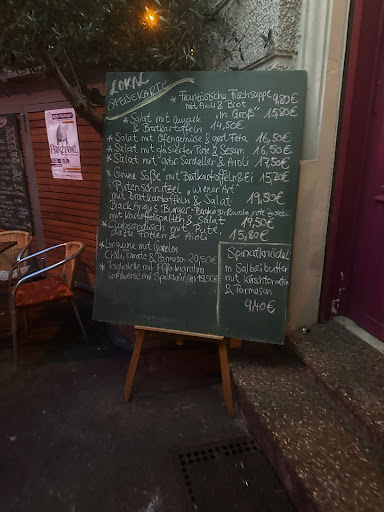 LOKAL
SPEISEKARTE
* Französische Fischsuppe 9,80€
mit Aioli & Brot
"in Groß" 15,80€
* Salat mit
& Bratkartoffeln 14,50€
* Salat mit Ofengemüse & geröst. Feta 16,50€
* Salat mit glasierter Pute & Sesam 16,50€
* Salat mit gebr. Sardellen & Aioli 17,50€
* Grüne Soße mit Bratkartoffeln & Ei 15,20€
* Putenschnitzel "Wiener Art"
mit Bratkartoffeln & Salat 19,50€
Black Angus Burger
mit Kartoffelspalten & Salat 19,50€
* Clubsandwich mit Pute,
dazu Fritten & Aioli 15,80€
* Linguine mit
Chili, Tomate & Parmesan 20,50€
* Tagliatelle mit Pfifferlingrahm
wahlweise mit Speck 18,50€
Spinatknödel
in Salbeibutter
mit Kirschtomaten
& Parmesan
9,40€